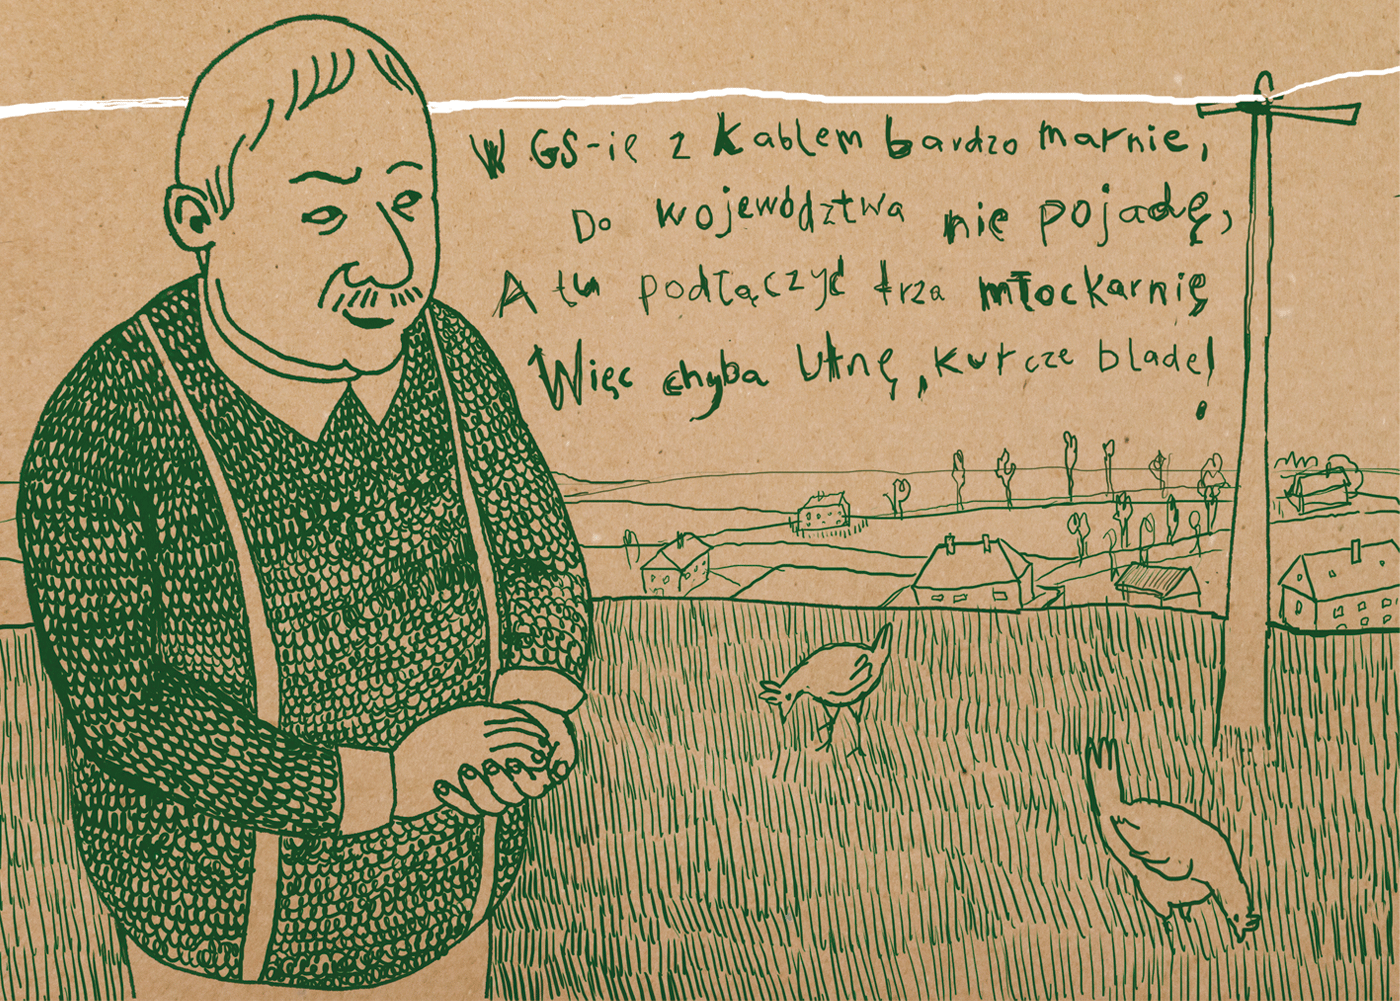 W GS-ie z kablem bardzo marnie,
Do województwa nie pojadę,
A tu podłączyć trza młockarnię
Więc chyba utnę, kurcze blade!